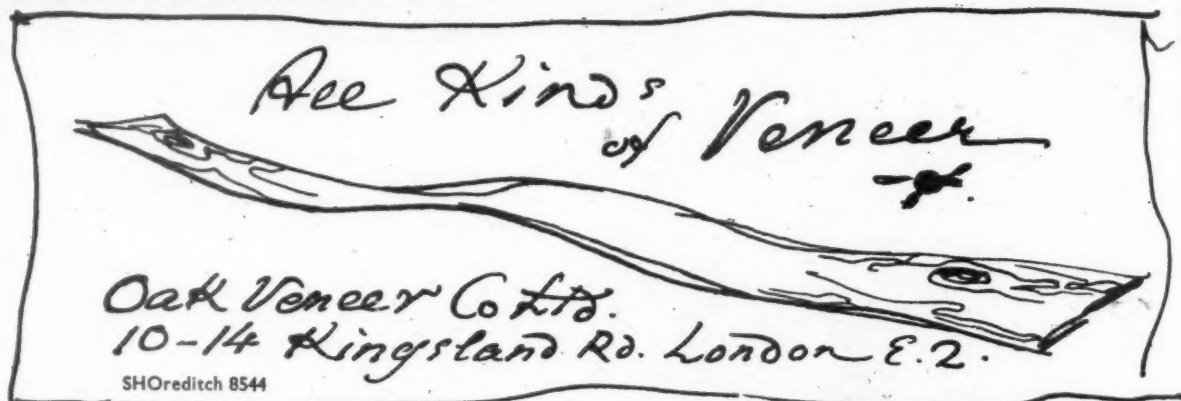 All Kinds
of Veneer
Oak Veneer Co Ltd.
10-14 Kingsland Rd. London E.2.
SHOreditch 8544